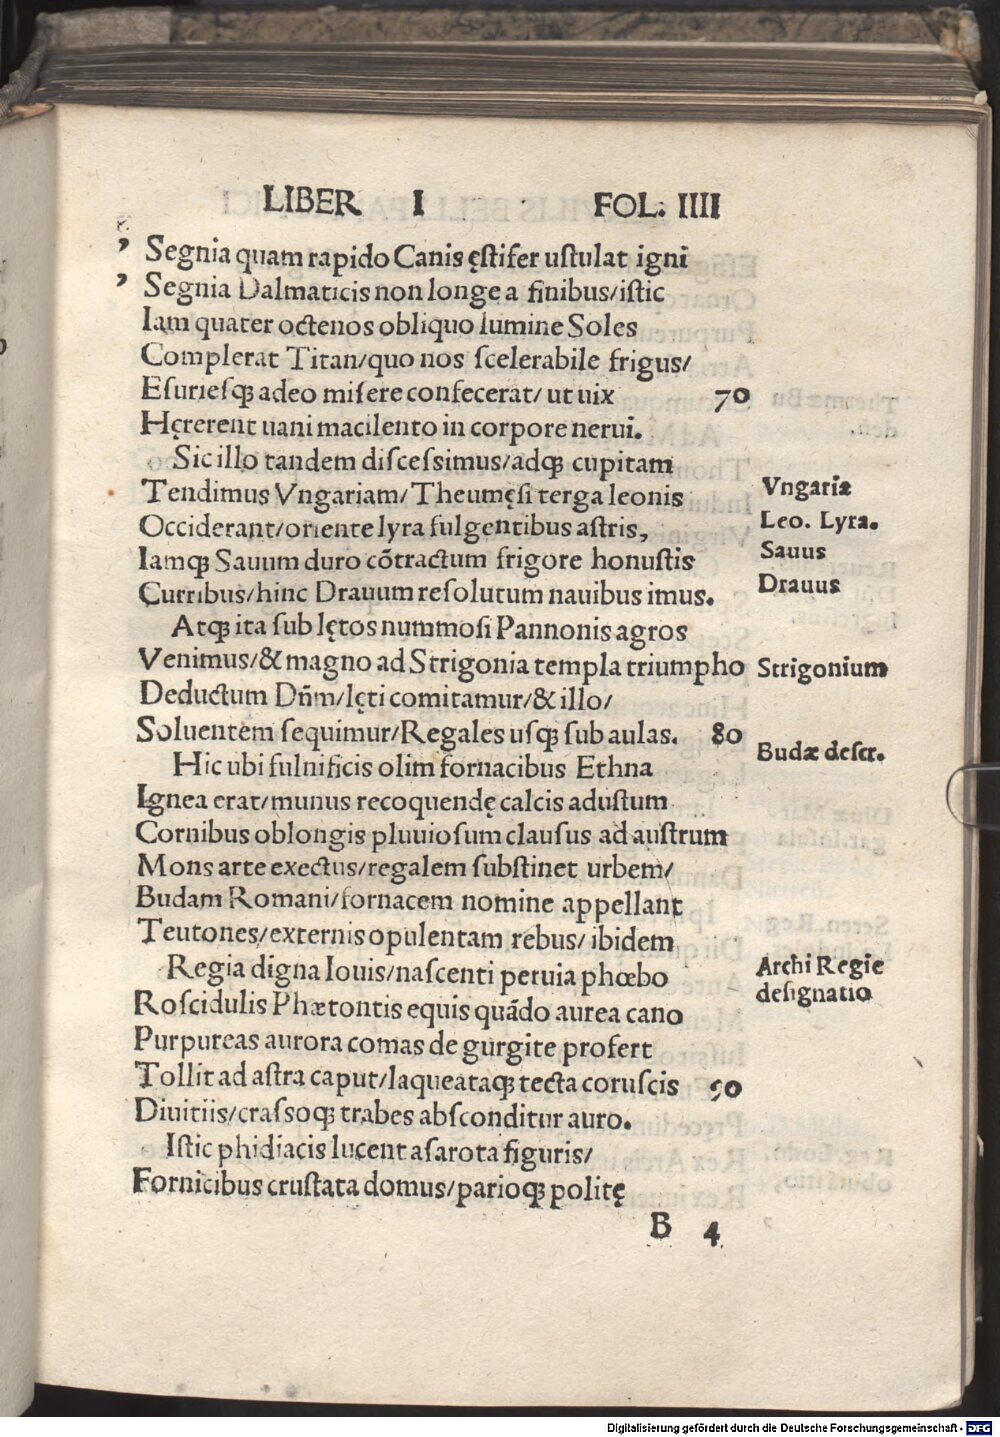 LIBER I FOL. IIII
, Segnia quam rapido Canis ęſtifer uſtulat igni
, Segnia Dalmaticis non longe a finibus/iſtic
Iam quater octenos obliquo lumine Soles
Complerat Titan/quo nos ſcelerabile frigus/
Eſurieſqꝫ adeo miſere confecerat/ ut uix 70
Hęrerent uani macilento in corpore nerui.
Sic illo tandem diſceſsimus/adqꝫ cupitam
Tendimus Vngariam/Theumęſi terga leonis Vngariæ
Occiderant/oriente lyra fulgentibus aſtris, Leo. Lyra.
Iamqꝫ Sauum duro cõtractum frigore honuſtis Sauus
Curribus/hinc Drauum reſolutum nauibus imus. Drauus
Atqꝫ ita ſub lętos nummoſi Pannonis agros
Venimus/& magno ad Strigonia templa triumpho Strigonium
Deductum Dñm/lęti comitamur/& illo/
Soluentem ſequimur/Regales uſqꝫ ſub aulas. 80
Budæ deſcr.
Hic ubi fulnificis olim fornacibus Ethna
Ignea erat/munus recoquendę calcis aduſtum
Cornibus oblongis pluuioſum clauſus ad auſtrum
Mons arte exectus/regalem ſubſtinet urbem/
Budam Romani/fornacem nomine appellant
Teutones/externis opulentam rebus/ ibidem
Regia digna Iouis/naſcenti peruia phœbo Archi Regie
Roſcidulis Phætontis equis quãdo aurea cano deſignatio
Purpureas aurora comas de gurgite profert
Tollit ad aſtra caput/laqueataqꝫ tecta coruſcis 90
Diuitiis/craſſoqꝫ trabes abſconditur auro.
Iſtic phidiacis lucent aſarota figuris/
Fornicibus cruſtata domus/parioqꝫ politę
B 4
Digitalisierung gefördert durch die Deutsche Forschungsgemeinschaft - DFG